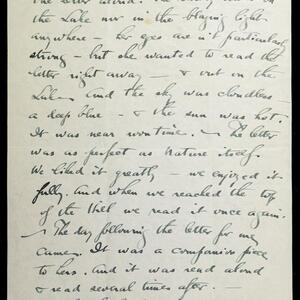 the letter aloud.
the Lake nor in the blazing light
anywhere – her eyes ain't particularly
strong – but she wanted to read the
letter right away – & out on the
Lake. And the sky was cloudless –
a deep blue – & the sun was hot.
It was near noontime. – The letter
was as perfect as Nature itself.
We liked it greatly – we enjoyed it
fully. And when we reached the top
of the Hill we read it once again.
– The day following the letter for me
came. It was a companion piece
to hers. And it was read aloud
& read several times after. –